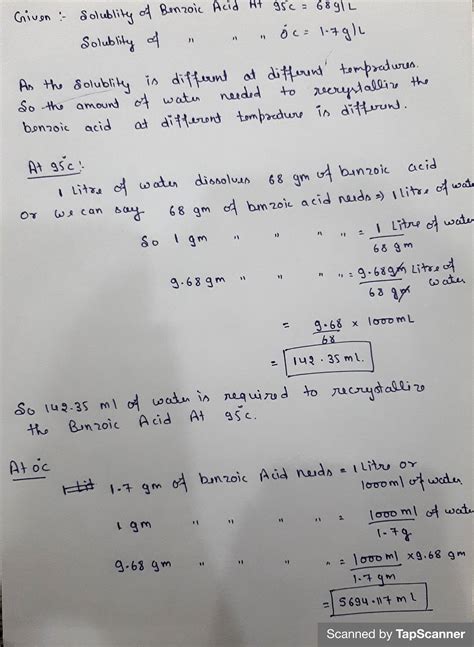 Given :- Solublity of Benzoic Acid At 95°c = 68g/L
Solublity of " " " 0°c = 1.7g/L
As the Solublity is different at different tempratures.
So the amount of water needed to recrystallize the
benzoic acid at different temprature is different.
At 95°c :-
1 Litre of water dissolves 68 gm of benzoic acid
or we can say 68 gm of benzoic acid needs ⇒ 1 litre of wate
So 1 gm " " " " = 1 Litre of water / 68 gm
9.68 gm " " " " = 9.68gm Litre of water / 68 gm
= 9.68 / 68 × 1000mL
= 142.35 ml.
So 142.35 ml of water is required to recrystallize
the Benzoic Acid At 95°c.
At 0°c
1.7 gm of benzoic Acid needs = 1 Litre or
1000ml of water
1 gm " " " = 1000 ml of wate / 1.7g
9.68 gm " " " = 1000ml × 9.68 gm / 1.7 gm
= 5694.117 ml
Scanned by TapScanner